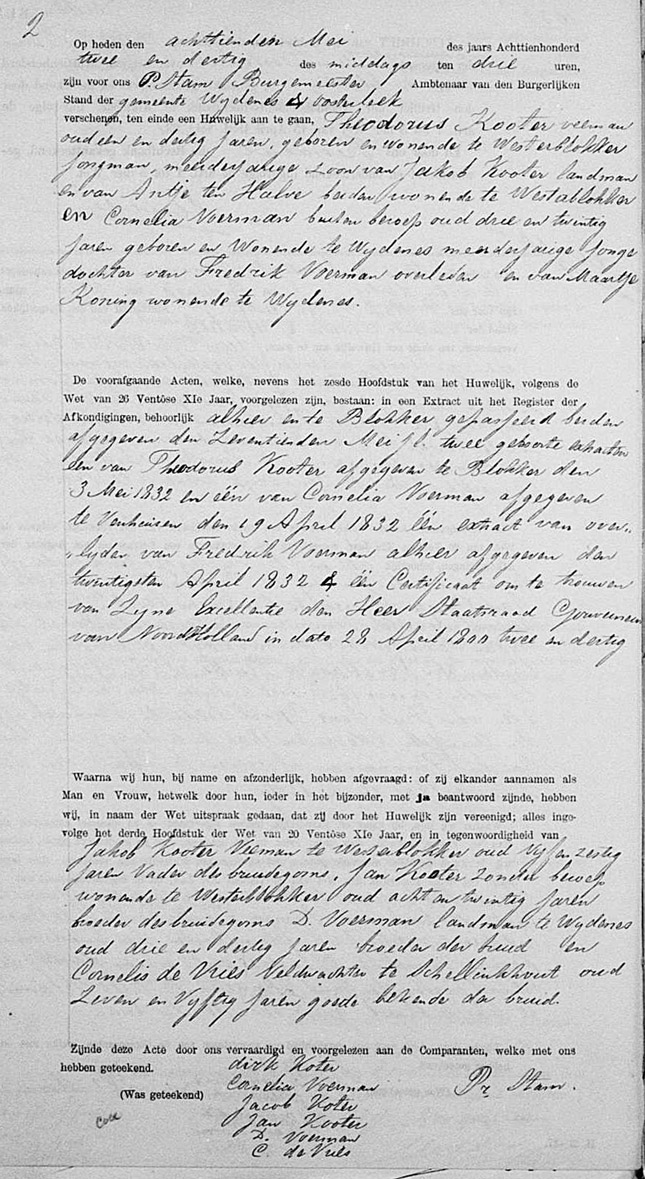 2
Op heden den achttienden Mei des jaars Achttienhonderd
twee en dertig des middags ten drie uren,
zijn voor ons P. Stam Burgemeester Ambtenaar van den Burgerlijken
Stand der gemeente Wydenes & Oosterleek
verschenen, ten einde een Huwelijk aan te gaan, Theodorus Kooter veeman
oud een en dertig jaren, geboren en wonende te Westerblokker
jongman, meerderjarige Zoon van Jakob Kooter landman
en van Antje ten Halve beiden wonende te Westerblokker
en Cornelia Voerman buiten beroep oud drie en twintig
jaren geboren en Wonende te Wydenes meerderjarige jonge
dochter van Fredrik Voerman overleden en van Maartje
Koning wonende te Wydenes.
De voorafgaande Acten, welke, nevens het zesde Hoofdstuk van het Huwelijk, volgens de
Wet van 26 Ventôse XIe Jaar, voorgelezen zijn, bestaan: in een Extract uit het Register der
Afkondigingen, behoorlijk alhier en te Blokker gepasseerd beiden
afgegeven den Zeventienden Mei jl. twee geboorte extracten
een van Theodorus Kooter afgegeven te Blokker den
3 Mei 1832 en één van Cornelia Voerman afgegeven
te Venhuisen den 19 April 1832 één extract van over„
„lyden van Fredrik Voerman alhier afgegeven den
twintigsten April 1832 & één Certificaat om te trouwen
van Zyne Excellentie den Heer Staatsraad Gouverneur
van Noord Holland in dato 28 April 1800 twee en dertig
Waarna wij hun, bij name en afzonderlijk, hebben afgevraagd: of zij elkander aannamen als
Man en Vrouw, hetwelk door hun, ieder in het bijzonder, met ja beantwoord zijnde, hebben
wij, in naam der Wet uitspraak gedaan, dat zij door het Huwelijk zijn vereenigd; alles inge-
volge het derde Hoofdstuk der Wet van 20 Ventôse XIe Jaar, en in tegenwoordigheid van
Jakob Kooter Veeman te Westerblokker oud Vyf en zestig
jaren Vader des bruidegoms, Jan Kooter Zonder beroep
wonende te Westerblokker oud acht en twintig jaren
broeder des bruidegoms D. Voerman landman te Wydenes
oud drie en dertig jaren broeder der bruid en
Cornelis de Vries Veldwachter te Schellinkhout oud
Zeven en Vyftig jaren goede bekende der bruid.
Zijnde deze Acte door ons vervaardigd en voorgelezen aan de Comparanten, welke met ons
hebben geteekend. dirk Koter
(Was geteekend) Cornelia Voerman Pr. Stam.
Jacob Koter
Jan Kooter
D. Voerman
C. de Vries